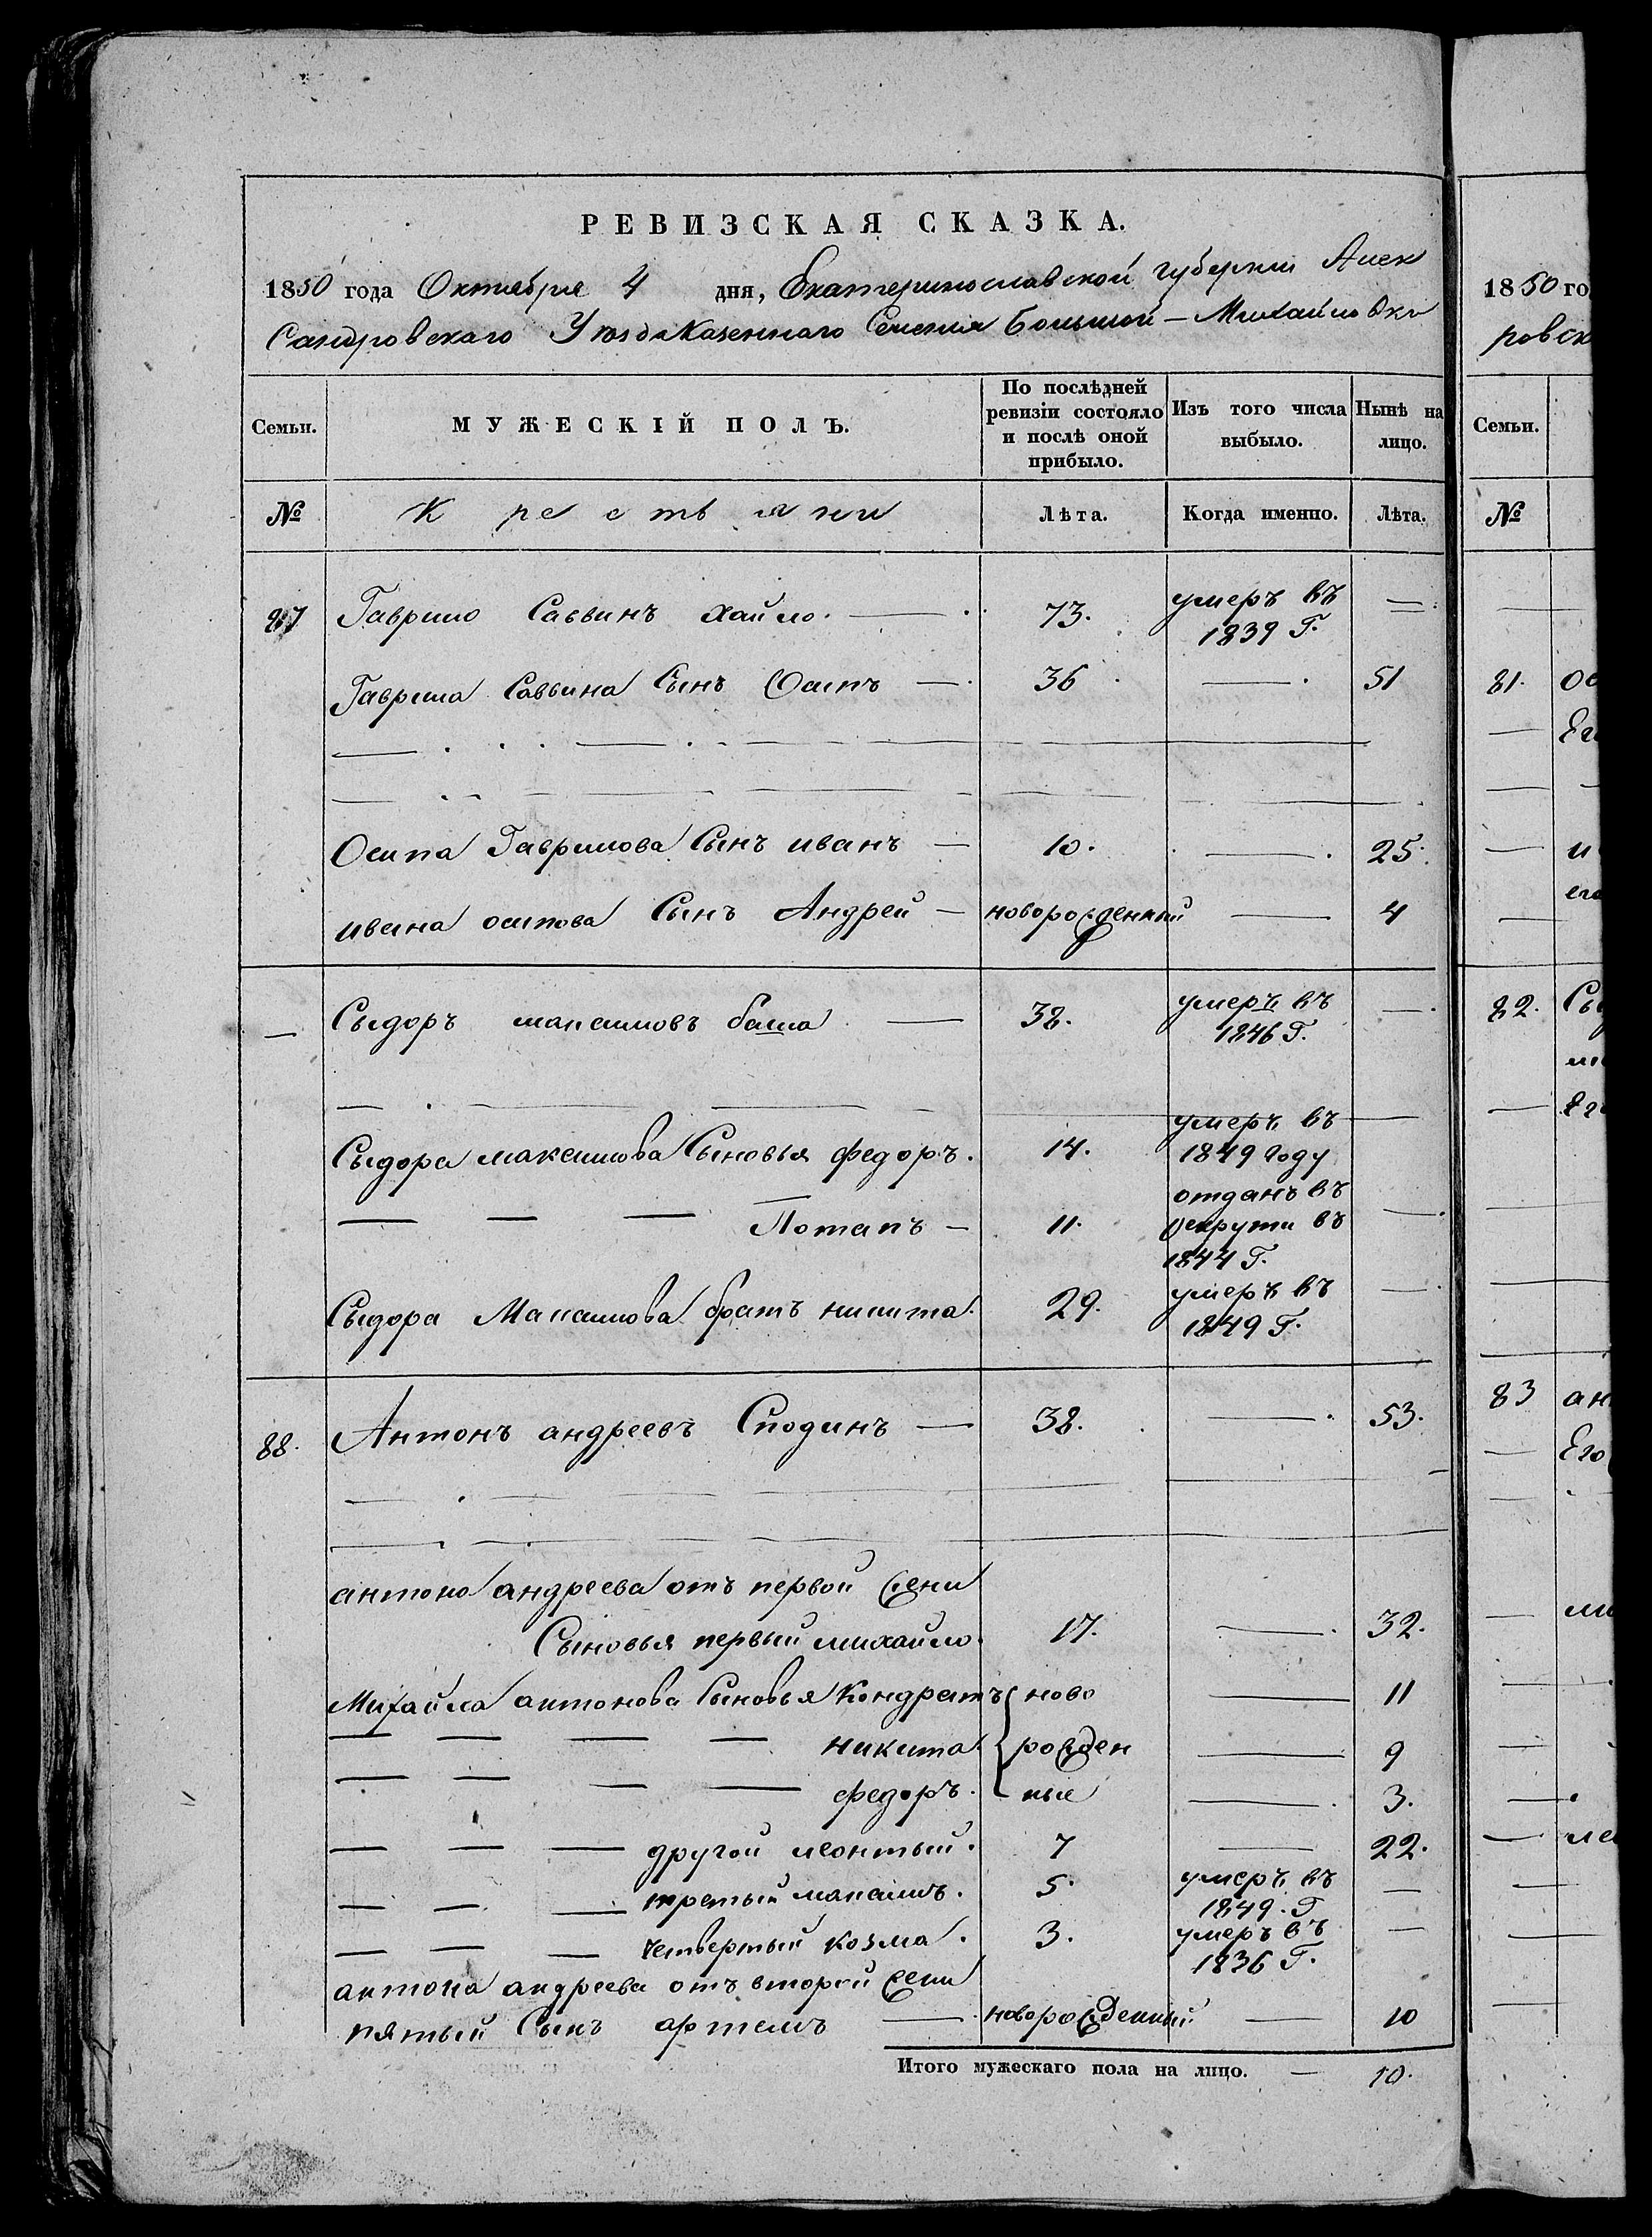 РЕВИЗСКАЯ СКАЗКА.
1850 года Октября 4 дня, Екатеринославской губернии Алек
сандровскаго Уѣзда Казеннаго Селения Большой - Михайловки
Семьи. МУЖЕСКІЙ ПОЛЪ. По послѣдней ревизіи состояло и послѣ оной прибыло. Изъ того числа выбыло. Нынѣ на лицо.
№ Крестьяни Лѣта. Когда именно. Лѣта.
87 Гаврило Саввинъ хайло. — 73. умеръ въ 1839 Г. —
Гаврила Саввина Сынъ Осипъ — 36 — 51
Осипа Гаврилова Сынъ иванъ — 10. — 25.
ивана осипова Сынъ Андрей — новорожденный — 4
— Сыдоръ максимовъ баша — 38. умеръ въ 1846 Г. —
Сыдора максимова Сыновья федоръ. 14. умеръ въ 1849 году —
— — — Потапъ — 11. отданъ въ рекрути въ 1844 Г. —
Сыдора Максимова братъ никита. 29. умеръ въ 1849 Г. —
88. Антонъ андреевъ Сподинъ — 38. — 53.
антона андреева отъ первой жени
Сыновья первый михайло. 17. — 32.
Михайла антонова Сыновья Кондратъ ново — 11
— — — — никита. рожден — 9
— — — — федоръ. ные — 3.
— — — другой леонтый. 7 — 22.
— — — третый максимъ. 5. умеръ въ 1849. Г —
— — — четвертый козма. 3. умеръ въ 1836 Г. —
антона андреева отъ второй жени
пятый Сынъ артемъ — новорожденный. — 10
Итого мужескаго пола на лицо. — 10.
1850 го
ровск
Семьи.
№
81. ос
Его
и
его
82. Сы
Его
83 ан
Его
ми
ле